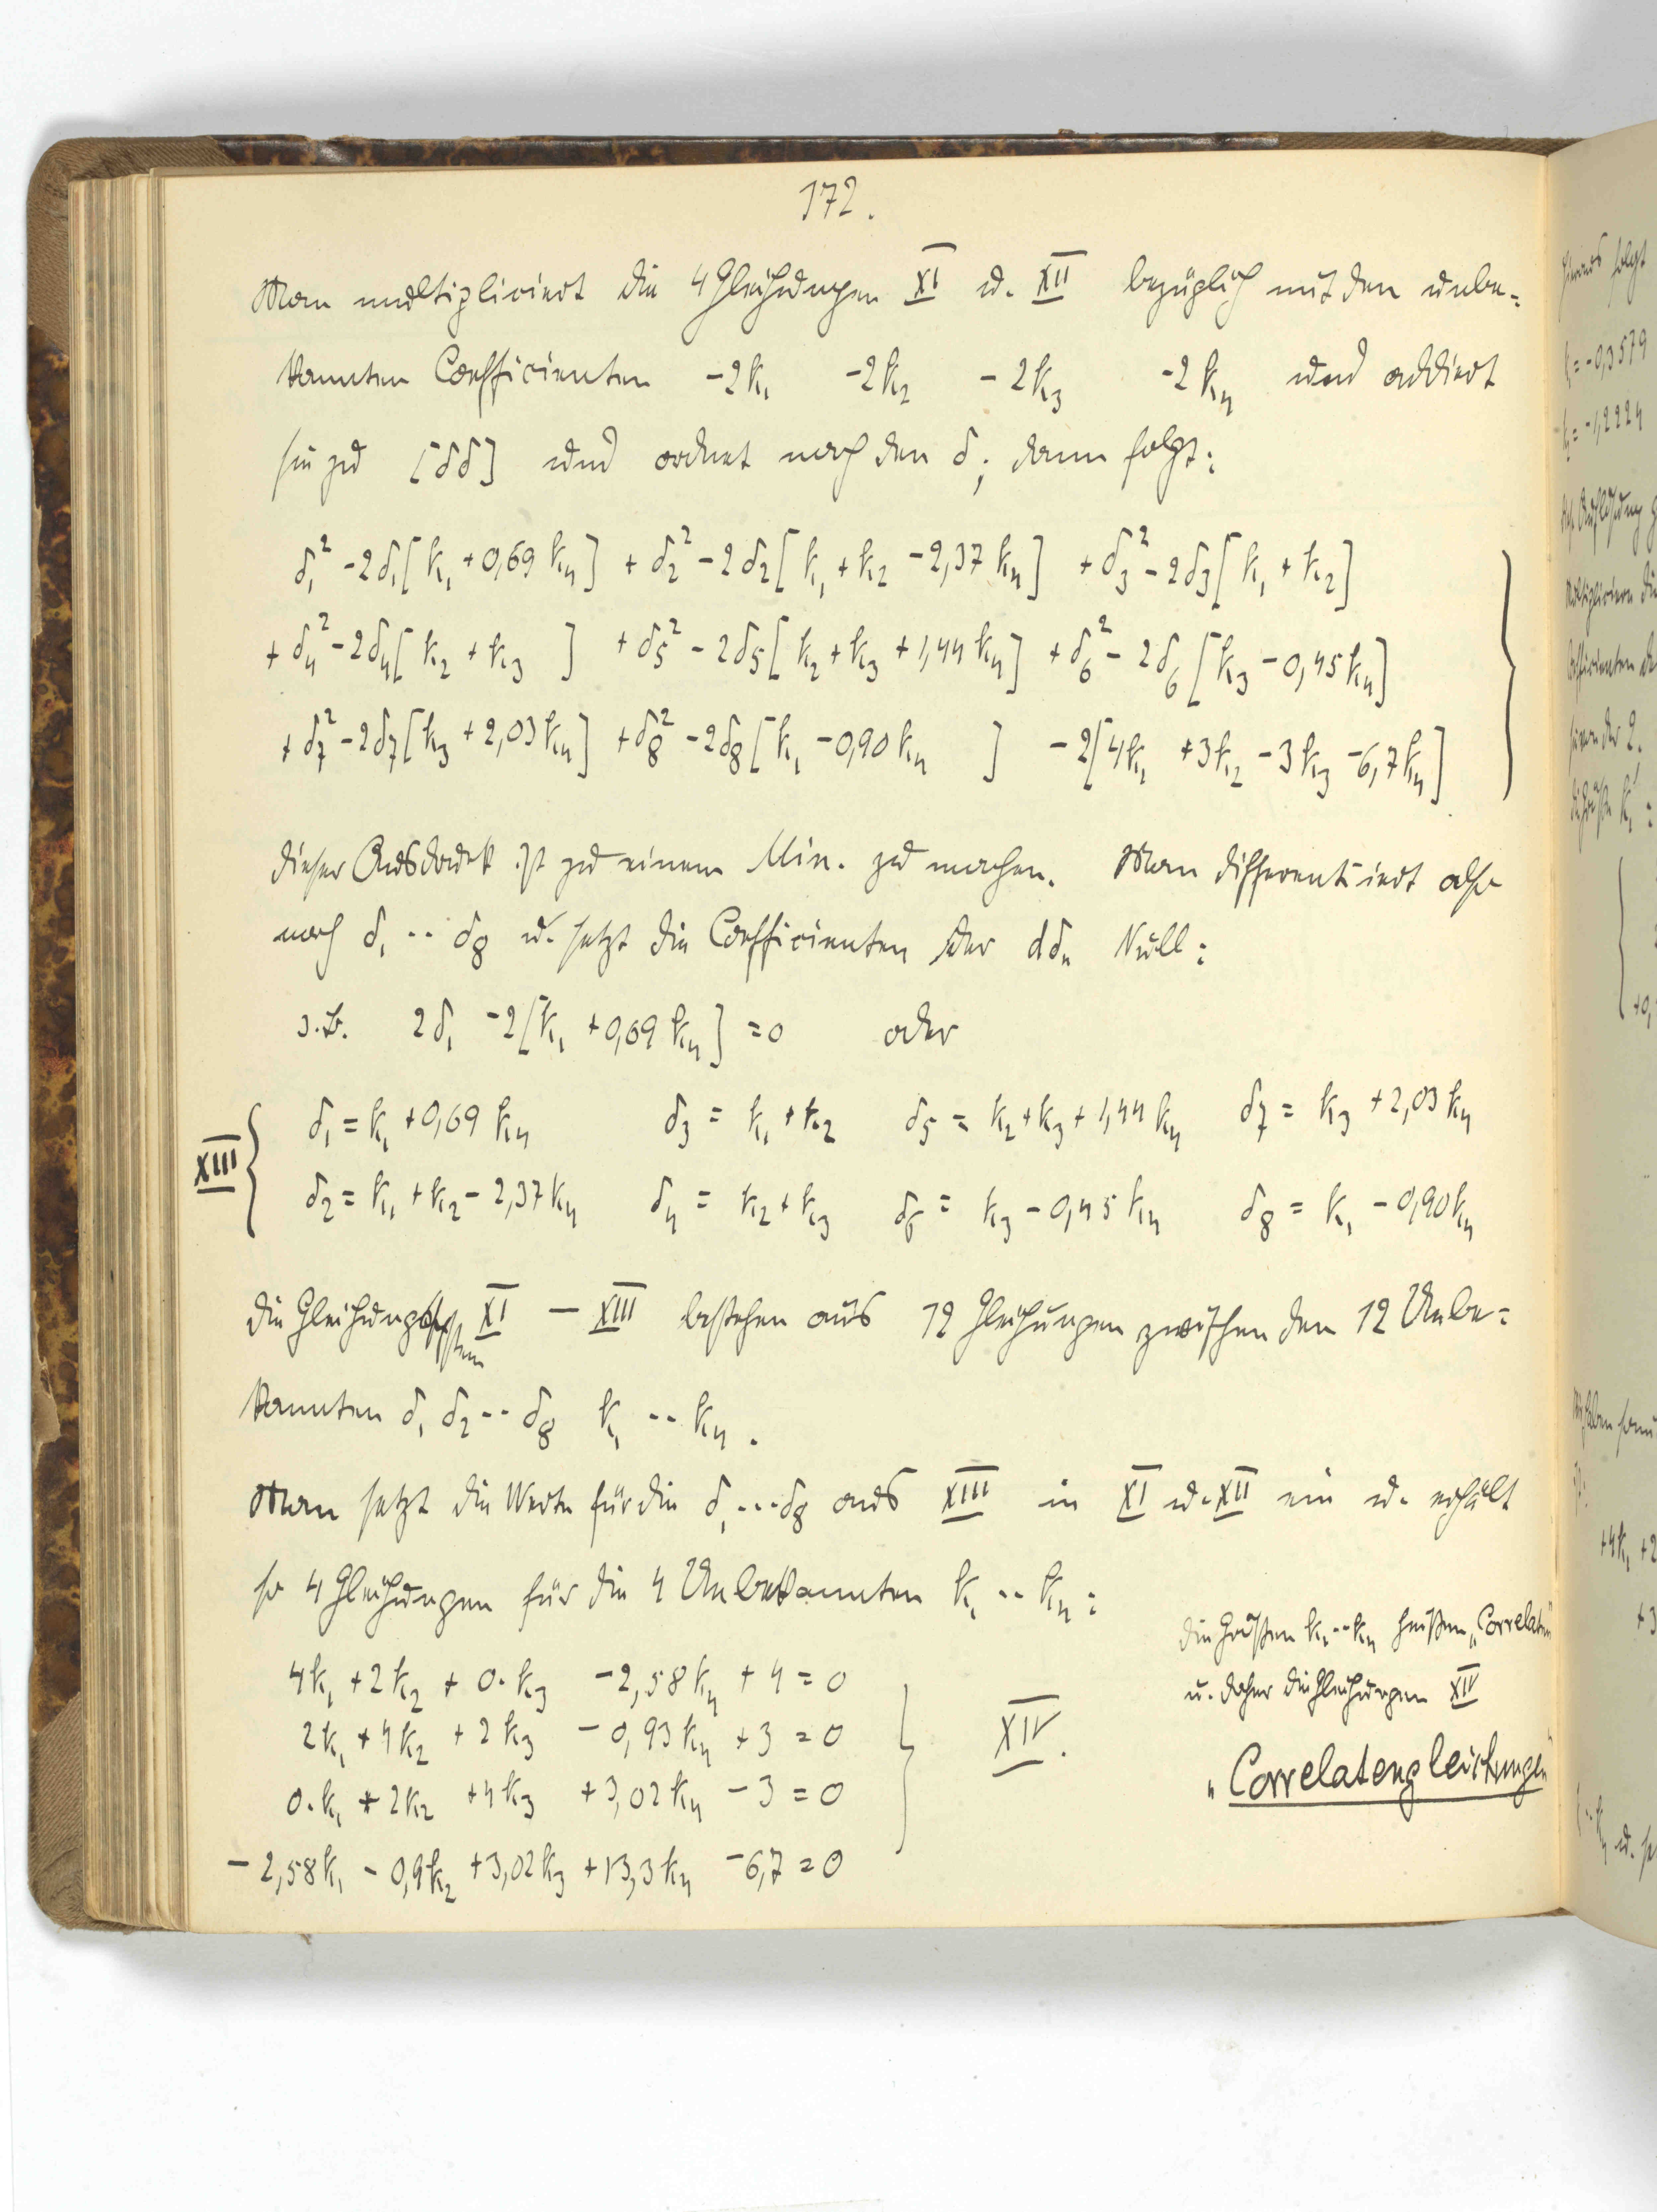 172.
Man multipliciert die 4 Gleichungen XI u. XII bezüglich mit den unbe=
kannten Coefficienten -2k₁ -2k₂ -2k₃ -2k₄ und addiert
sie zu [δδ] und ordnet nach den δ; dann folgt:
δ₁² -2δ₁[k₁ +0,69 k₄] + δ₂² -2δ₂[k₁ +k₂ -2,37 k₄] + δ₃² -2δ₃[k₁ + k₂]
+ δ₄² -2δ₄[k₂ + k₃ ] + δ₅² -2δ₅[k₂ + k₃ + 1,44 k₄] + δ₆² - 2δ₆[k₃ -0,45 k₄]
+ δ₇² -2δ₇[k₃ + 2,03 k₄] + δ₈² -2δ₈[k₁ -0,90 k₄ ] -2[4k₁ +3k₂ -3k₃ -6,7k₄]
dieser Ausdruck ist zu einem Min. zu machen. Man differentiiert also
nach δ₁ ·· δ₈ u. setzt die Coefficienten der dδₙ Null:
z.B. 2δ₁ -2[k₁ +0,69 k₄] = 0 oder
XIII { δ₁ = k₁ +0,69 k₄ δ₃ = k₁ + k₂ δ₅ = k₂+k₃+1,44 k₄ δ₇ = k₃ +2,03 k₄
δ₂ = k₁ + k₂ - 2,37 k₄ δ₄ = k₂ + k₃ δ₆ = k₃ - 0,45 k₄ δ₈ = k₁ - 0,90 k₄
die Gleichungssystem XI — XIII bestehen aus 12 Gleichungen zwischen den 12 Unbe=
kannten δ₁ δ₂ ·· δ₈ k₁ ·· k₄.
Man setzt die Werte für die δ₁ ··· δ₈ aus XIII in XI u. XII ein u. erhält
so 4 Gleichungen für die 4 Unbekannten k₁ ·· k₄:
4k₁ +2k₂ + 0·k₃ -2,58k₄ + 4 = 0
2k₁ + 4k₂ + 2k₃ - 0,93k₄ + 3 = 0
0·k₁ + 2k₂ +4k₃ +3,02k₄ - 3 = 0
- 2,58k₁ - 0,9k₂ +3,02k₃ +13,3k₄ -6,7 = 0
XIV.
die Größen k₁··k₄ heißen „Correlaten"
u. daher die Gleichungen XIV
„Correlatengleichungen"
hieraus folgt
= -0,3579
= -1,2224